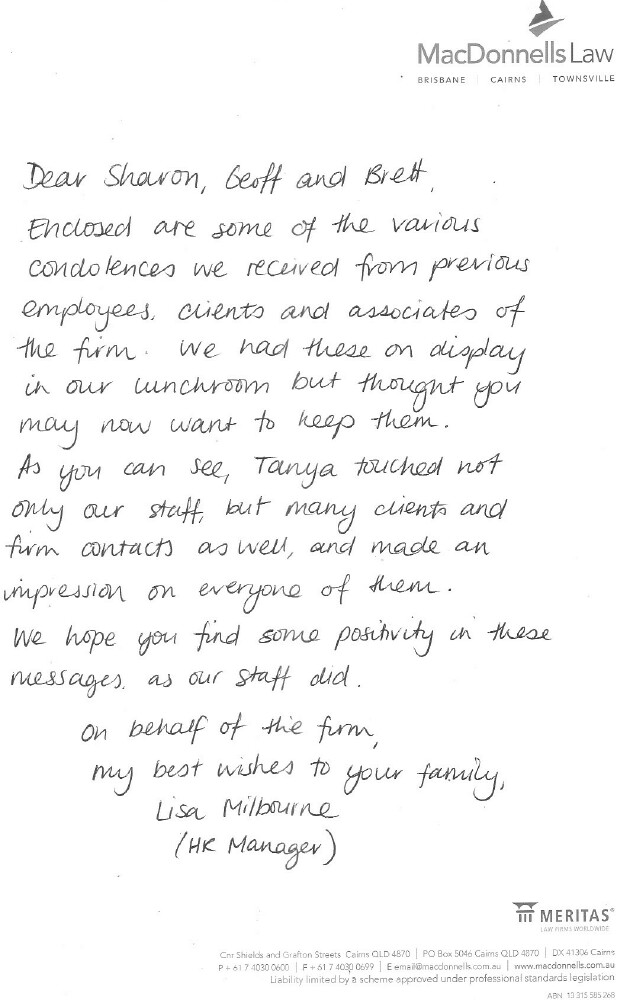 MacDonnells Law
BRISBANE | CAIRNS | TOWNSVILLE
Dear Sharon, Geoff and Brett,
Enclosed are some of the various
condolences we received from previous
employees, clients and associates of
the firm. We had these on display
in our lunchroom but thought you
may now want to keep them.
As you can see, Tanya touched not
only our staff, but many clients and
firm contacts as well, and made an
impression on everyone of them.
We hope you find some positivity in these
messages, as our staff did.
On behalf of the firm,
my best wishes to your family,
Lisa Milbourne
(HR Manager)
MERITAS®
LAW FIRMS WORLDWIDE
Cnr Shields and Grafton Streets Cairns QLD 4870 | PO Box 5046 Cairns QLD 4870 | DX 41306 Cairns
P + 61 7 4030 0600 | F + 61 7 4030 0699 | E email@macdonnells.com.au | www.macdonnells.com.au
Liability limited by a scheme approved under professional standards legislation
ABN 10 315 585 268